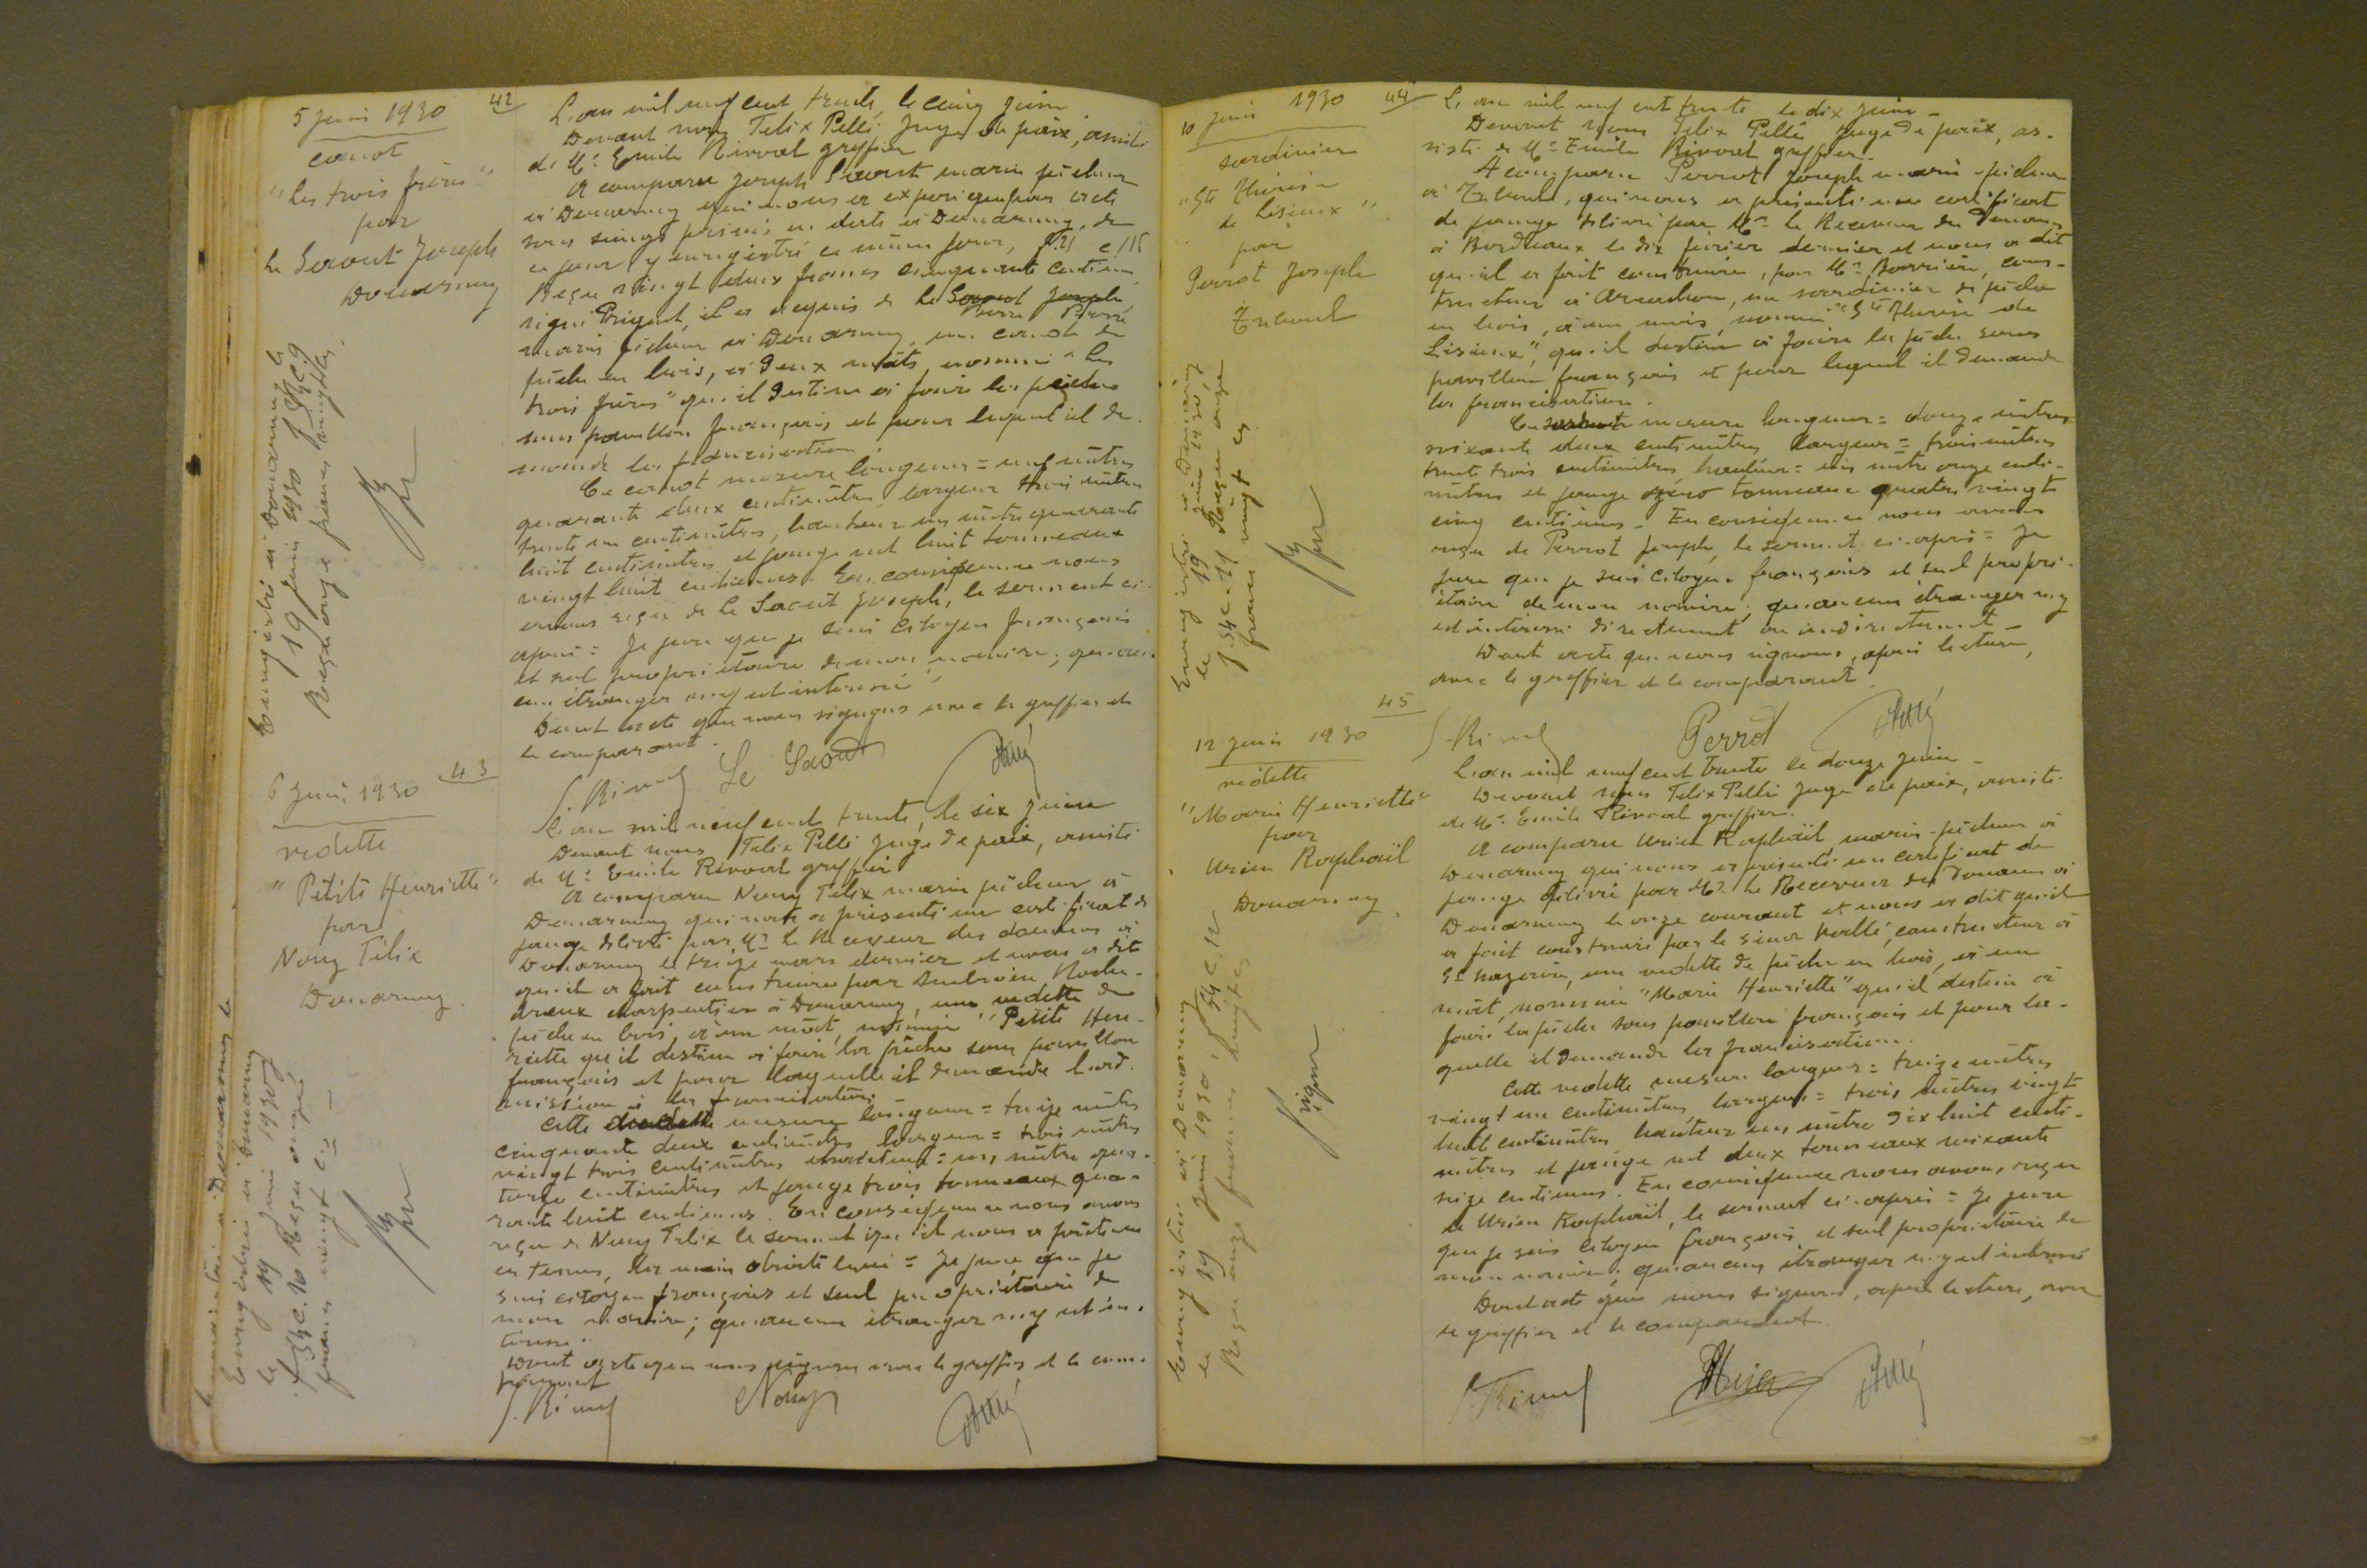 5 juin 1930
42
canot
"Les trois frères"
par
Le Saout Joseph
Douarnenez
Enregistré à Douarnenez le
19 juin 1930 f 54 c 9
Reçu onze francs vingt cts.
L'an mil neuf cent trente, le cinq juin
Devant nous Félix Pellé Juge de paix, assisté
de Mr Emile Rivoal greffier
A comparu Joseph Le Saout marin pêcheur
à Douarnenez qui nous a exposé que par acte
sous seings privés en date à Douarnenez, du
ce jour y enregistré ce même jour,
Reçu vingt deux francs cinquante centimes
signé Brigant, il a acquis de Le Saout Joseph
Pierre
marin pêcheur à Douarnenez, un canot de
pêche en bois, à deux mâts, nommé "Les
trois frères" qu'il destine à faire les pêches
sous pavillon français et pour lequel il de-
mande la francisation
Ce canot mesure longueur = neuf mètres
quarante deux centimètres largeur trois mètres
trente un centimètres, hauteur un mètre quarante
huit centimètres et jauge net huit tonneaux
vingt huit centièmes. En conséquence nous
avons reçu de Le Saout Joseph, le serment ci-
après = Je jure que je suis citoyen français
et seul propriétaire de mon navire ; qu'au-
cun étranger n'y est intéressé
Dont acte que nous signons avec le greffier et
le comparant.
E. Rivoal Le Saout Pellé
6 juin 1930
43
vedette
"Petite Henriette"
par
Nouy Félix
Douarnenez.
Enregistré à Douarnenez
le 19 juin 1930
f 54 c. 10 Reçu onze
francs vingt c.
L'an mil neuf cent trente, le six juin
Devant nous Félix Pellé Juge de paix, assisté
de Mr Emile Rivoal greffier
A comparu Nouy Félix marin pêcheur à
Douarnenez qui nous a présenté un certificat de
jauge délivré par Mr le Receveur des douanes à
Douarnenez le treize mars dernier et nous a dit
qu'il a fait construire par
charpentier à Douarnenez, une vedette de
pêche en bois, à un mât, nommée "Petite Hen-
riette qu'il destine à faire la pêche sous pavillon
français et pour laquelle il demande l'ad-
mission à la francisation
Cette vedette mesure longueur = treize mètres
cinquante deux centimètres largeur = trois mètres
vingt trois centimètres hauteur = un mètre qua-
torze centimètres et jauge trois tonneaux qua-
rante huit centièmes. En conséquence nous avons
reçu de Nouy Félix le serment qu'il nous a prêté
en termes, la main droite levée = Je jure que je
suis citoyen français et seul propriétaire de
mon navire ; qu'aucun étranger n'y est in-
téressé.
Dont acte que nous signons avec le greffier et le com-
parant
E. Rivoal Nouy Pellé
10 juin 1930
44
sardinier
"Ste Thérèse
de Lisieux"
par
Perrot Joseph
Tréboul
Enregistré à Douarnenez
le 19 juin 1930,
f. 54 c. 11 Reçu onze
francs vingt cts
L'an mil neuf cent trente le dix juin -
Devant nous Félix Pellé Juge de paix, as-
sisté de Mr Emile Rivoal greffier.
A comparu Perrot Joseph marin-pêcheur
à Tréboul, qui nous a présenté un certificat
de jauge délivré par Mr le Receveur des Douanes
à Bordeaux le dix février dernier et nous a dit
qu'il a fait construire, par Mr Barrière, cons-
tructeur à Arcachon, un sardinier de pêche
en bois, à un mât, nommé "Ste Thérèse de
Lisieux", qu'il destine à faire la pêche sous
pavillon français et pour lequel il demande
la francisation.
Ce mesure longueur = douze mètres
soixante deux centimètres largeur = trois mètres
trente trois centimètres, hauteur = un mètre onze centi-
mètres et jauge zéro tonneaux quatre vingt
cinq centièmes. En conséquence nous avons
reçu de Perrot Joseph, le serment ci-après = Je
jure que je suis citoyen français et seul propri-
étaire de mon navire, qu'aucun étranger n'y
est intéressé directement ou indirectement -
Dont acte que nous signons, après lecture,
avec le greffier et le comparant.
E. Rivoal Perrot Pellé
45
12 juin 1930
vedette
"Marie Henriette"
par
Urien Raphaël
Douarnenez
Enregistré à Douarnenez
le 19 juin 1930 f 54 c. 12
Reçu onze francs vingt cts
signé
L'an mil neuf cent trente le douze juin -
Devant nous Félix Pellé Juge de paix, assisté
de Mr Emile Rivoal greffier.
A comparu Urien Raphaël, marin-pêcheur à
Douarnenez qui nous a présenté un certificat de
jauge délivré par Mr le Receveur des Douanes à
Douarnenez le onze courant et nous a dit qu'il
a fait construire par le sieur constructeur à
St Nazaire, une vedette de pêche en bois, à un
mât, nommée "Marie Henriette" qu'il destine à
faire la pêche sous pavillon français et pour la-
quelle il demande la francisation.
Cette vedette mesure longueur = treize mètres
vingt un centimètres, largeur = trois mètres vingt
huit centimètres hauteur un mètre dix huit centi-
mètres et jauge net deux tonneaux soixante
seize centièmes. En conséquence nous avons reçu
de Urien Raphaël, le serment ci-après = Je jure
que je suis citoyen français, et seul propriétaire de
mon navire ; qu'aucun étranger n'y est intéressé
Dont acte que nous signons, après lecture, avec
le greffier et le comparant.
E. Rivoal Urien Pellé